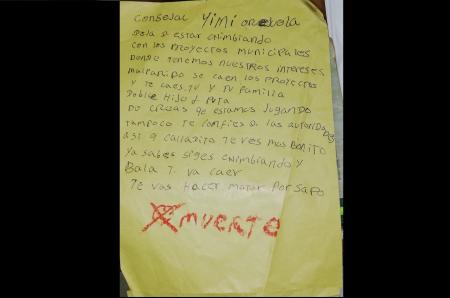 Consejal YiMi orejuela
deja d estar chimbiando
con los Proyectos Municipales
donde tenemos nuestros intereses
malparido se caen los Proyectos
y te caes tu y tu familia
doble Hijo d Puta
no creas qe estamos Jugando
tampoco te confies d las autorida des
asi q calladito te ves mas Bonito
ya sabes siges chimbiando y
Bala T. va caer
te vas Hacer matar Por sapo
MUERTE